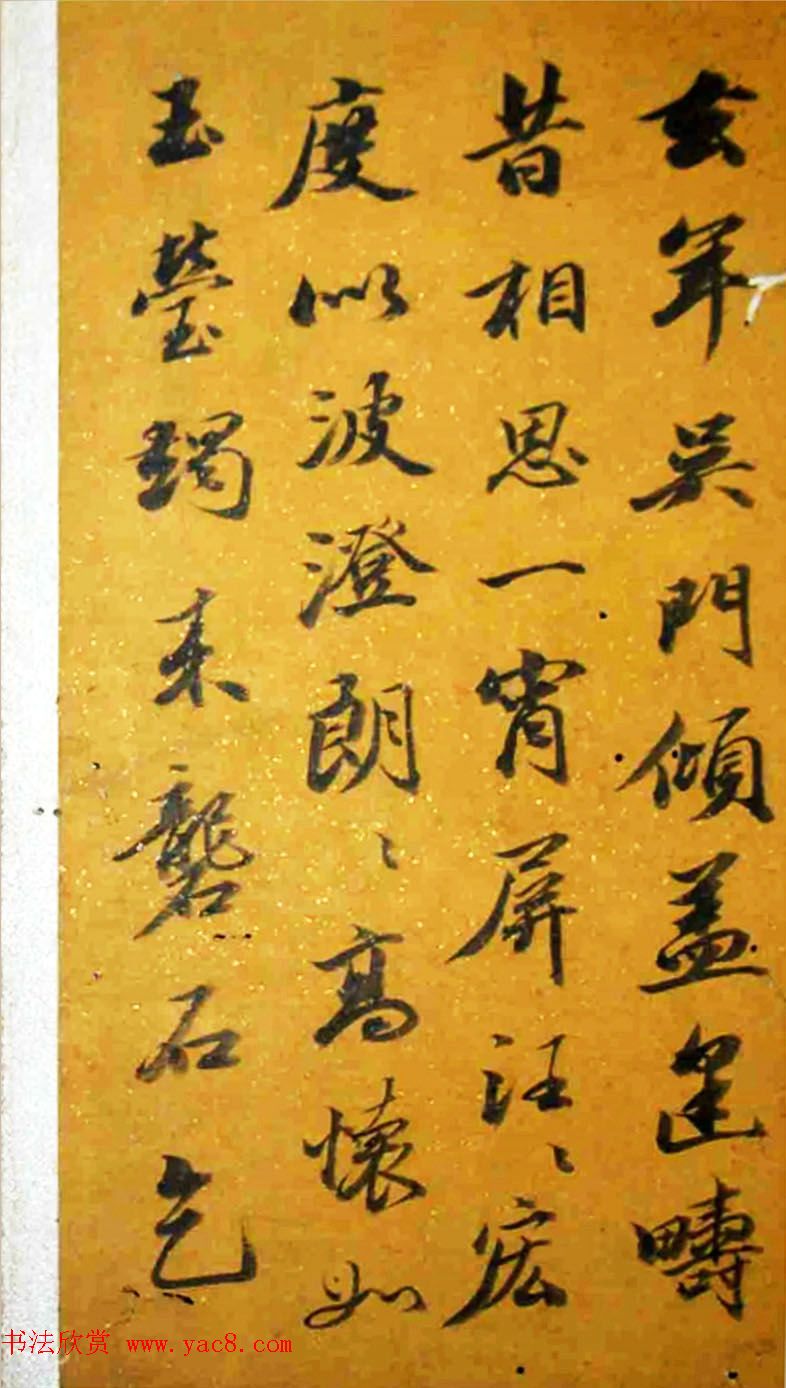 去年吳門傾蓋逢疇
昔相思一宵屏汪〻宏
度似波澄朗〻高懷如
玉瑩鐲来礱石乞
书法欣赏 www.yac8.com